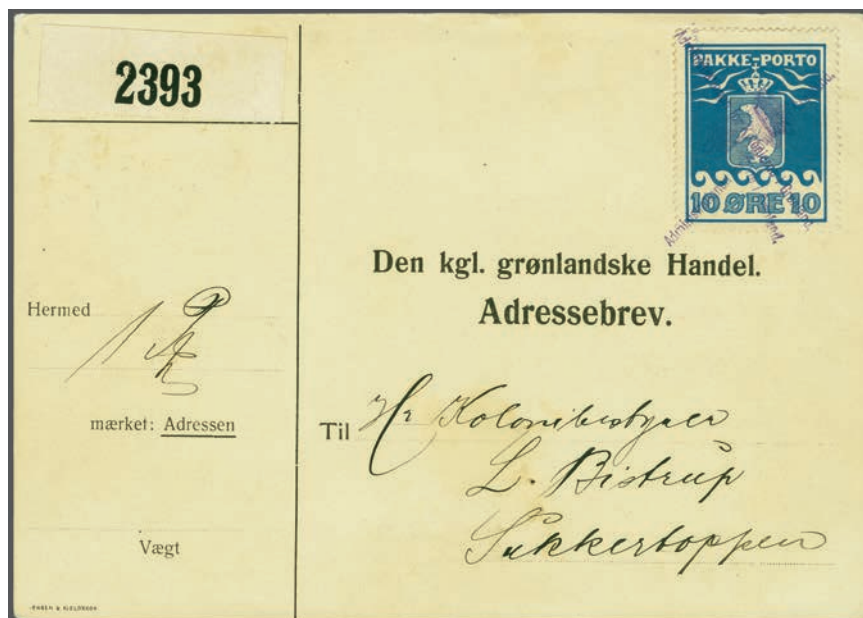 2393
Hermed
1
mærket: Adressen
Vægt
JENSEN & KJELDSKOV
PAKKE-PORTO
10 ØRE 10
Den kgl. grønlandske Handel.
Adressebrev.
Til Hr Kolonibestyrer
L. Bistrup
Sukkertoppen